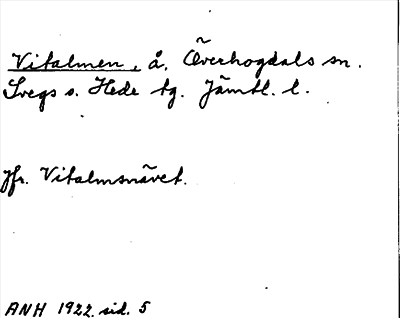 Vitalmen, å, Överhogdals sn.
Svegs o. Hede tg. Jämtl. l.
Jfr. Vitalmsnävet.
ANH 1922, sid. 5